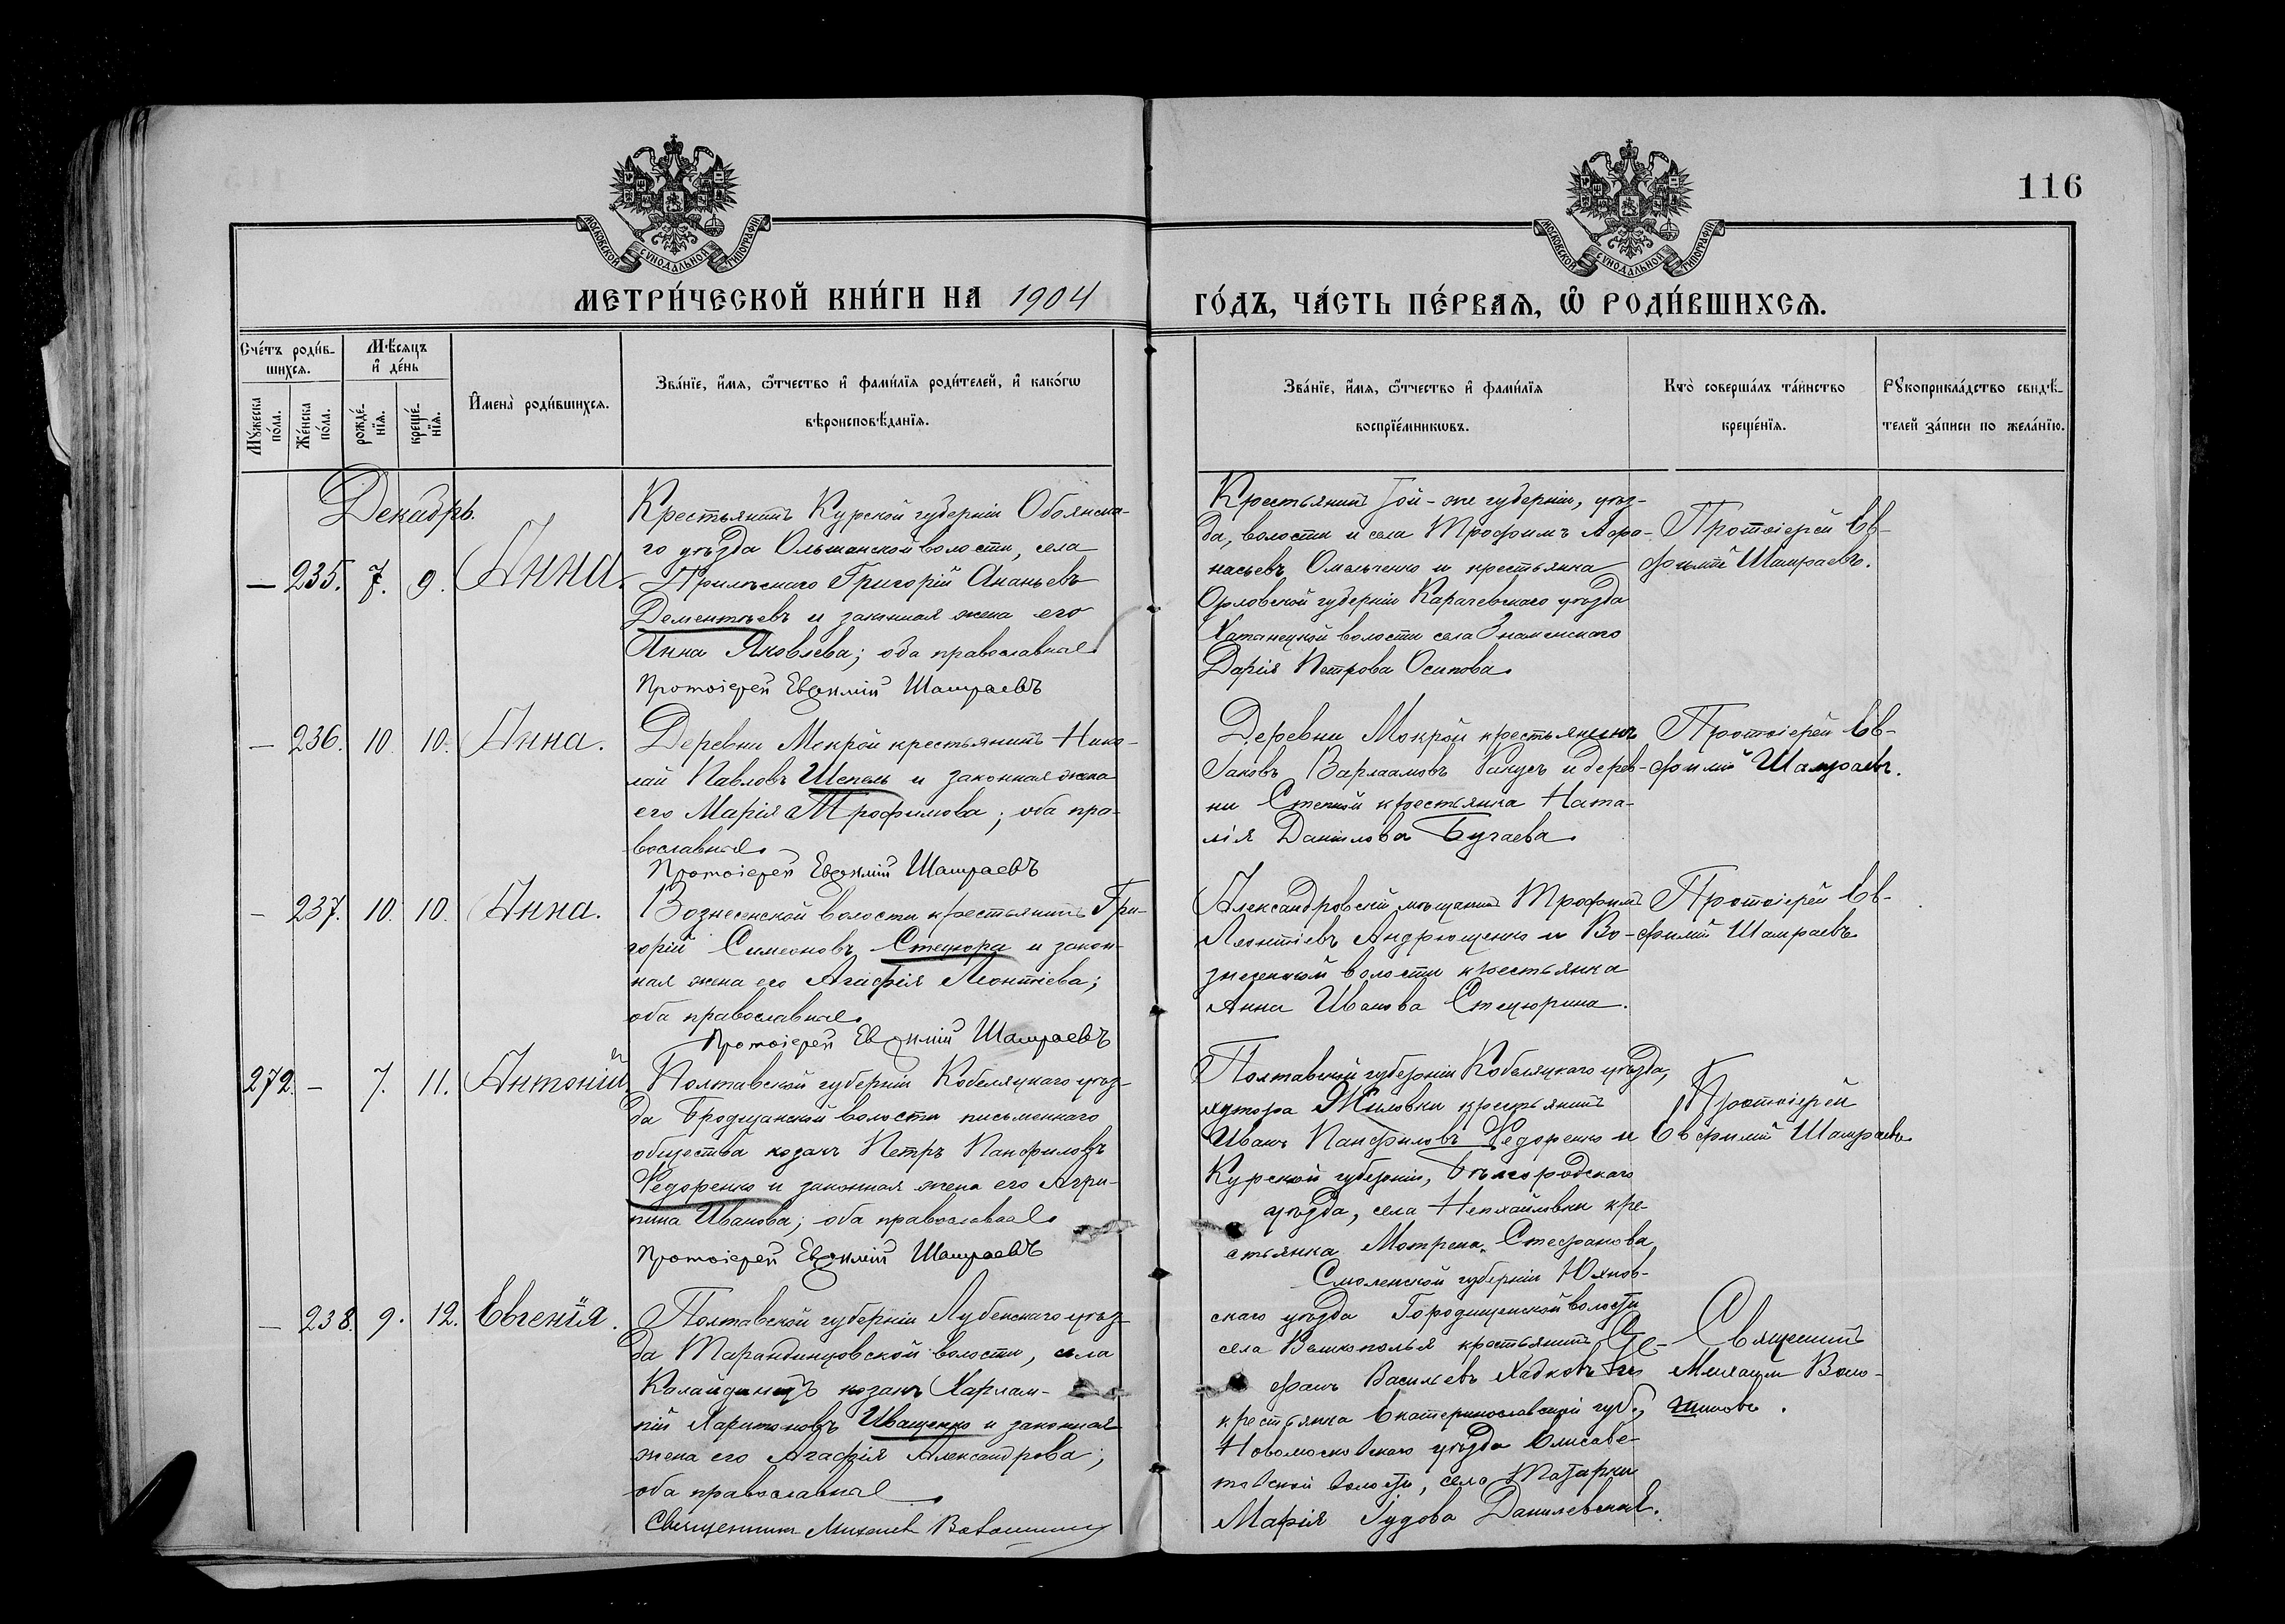 116
МОСКОВСКОЙ СѴНОДАЛЬНОЙ ТИПОГРАФІИ
МОСКОВСКОЙ СѴНОДАЛЬНОЙ ТИПОГРАФІИ
МЕТРИ́ЧЕСКОЙ КНИ́ГИ НА 1904
ГО́ДЪ, ЧА́СТЬ ПЕ́РВАѦ, Ѡ҆ РОДИ́ВШИХСѦ.
Сче́тъ роди́в-
шихсѧ.
Мѣ́сѧцъ
и҆ де́нь
Мꙋ́жеска
по́ла.
Же́нска
по́ла.
рожде́-
нїѧ.
креще́-
нїѧ.
И҆мена̀ роди́вшихсѧ.
Зва́нїе, и҆́мѧ, ѻ҆́тчество и҆ фами́лїѧ роди́телей, и҆ како́гѡ
вѣроисповѣ́данїѧ.
Зва́нїе, и҆́мѧ, ѻ҆́тчество и҆ фами́лїѧ
воспрїе́мникѡвъ.
Кто̀ соверша́лъ та́инство
креще́нїѧ.
Рꙋкоприкла́дство свидѣ́-
телей за́писи по жела́нїю.
Декабрь.
— 235. 7. 9. Анна.
Крестьянинъ Курской губерніи Обоянска-
го уѣзда Ольшанской волости, села
Григорій Ананьевъ
Дементьевъ и законная жена его
Анна Яковлева; оба православные
Протоіерей Евѳимій Шамраевъ
Крестьянинъ той-же губерніи, уѣз-
да, волости и села Трофимъ Афа-
насьевъ Омельченко и крестьянка
Орловской губерніи Карачевскаго уѣзда
волости села Знаменскаго
Дарія Петрова Осипова
Протоіерей Ев-
фимій Шамраевъ.
— 236. 10. 10. Анна.
Деревни Мокрой крестьянинъ Нико-
лай Павловъ Шепель и законная жена
его Марія Трофимова; оба пра-
вославные
Протоіерей Евѳимій Шамраевъ
Деревни Мокрой крестьянинъ
Іаковъ Варлаамовъ и дерев-
ни Степной крестьянка Ната-
лія Данилова Бугаева
Протоіерей Ев-
фимій Шамраевъ.
— 237. 10. 10. Анна.
Вознесенской волости крестьянинъ Гри-
горій Симеоновъ Стецюра и закон-
ная жена его Агафія Леонтіева;
оба православные
Протоіерей Евѳимій Шамраевъ
Александровскій мѣщанинъ Трофимъ
Леонтіевъ Андрющенко и Во-
знесенской волости крестьянка
Анна Иванова Стецюрина.
Протоіерей Ев-
фимій Шамраевъ
272. — 7. 11. Антоній
Полтавской губерніи Кобеляцкаго уѣз-
да Бродщанской волости письменнаго
общества козакъ Петръ Панфиловъ
Федоренко и законная жена его Агри-
пина Иванова; оба православные
Протоіерей Евѳимій Шамраевъ
Полтавской губерніи Кобеляцкаго уѣзда,
хутора крестьянинъ
Иванъ Панфиловъ Федоренко и
Курской губерніи, Бѣлгородскаго
уѣзда, села Непхайловки кре-
стьянка Матрена Стефанова
Протоіерей
Евфимій Шамраевъ
— 238. 9. 12. Евгенія.
Полтавской губерніи Лубенскаго уѣз-
да Тарандинцовской волости, села
Калайдинецъ козакъ Харлам-
пій Харитоновъ Иващенко и законная
жена его Агафія Александрова;
оба православные
Священникъ Михаилъ Волошинъ
Смоленской губерніи Юхнов-
скаго уѣзда Городищенской волости
села Великополья крестьянинъ Сте-
фанъ Васильевъ Хадковъ и
крестьянка Екатеринославской губ.,
Новомосковскаго уѣзда Елисаве-
товской волости, села Татарки
Марія Іудова Данилевская.
Священникъ
Михаилъ Воло-
шиновъ.